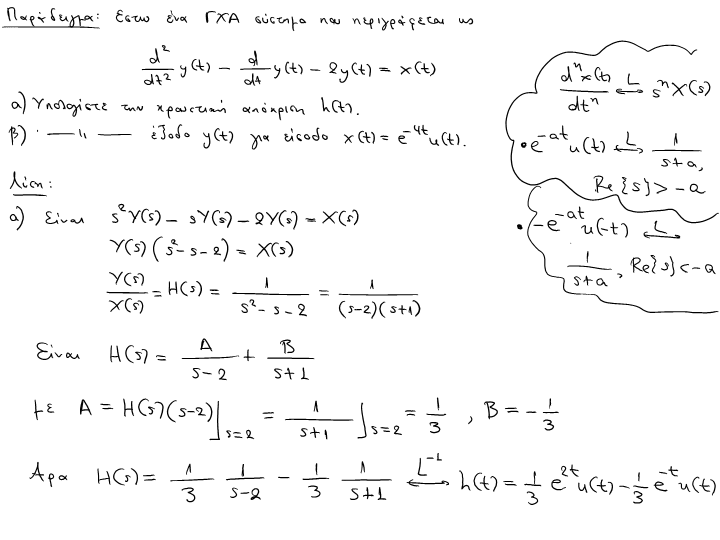 Παράδειγμα: Εστω ένα ΓΧΑ σύστημα που περιγράφεται ως
d²/dt² y(t) − d/dt y(t) − 2y(t) = x(t)
α) Υπολογίστε την κρουστική απόκριση h(t).
β) · —— '' —— έξοδο y(t) για είσοδο x(t) = e^{-4t}u(t).
dⁿx(t)/dtⁿ ⟷^L sⁿX(s)
• e^{-at}u(t) ⟷^L 1/(s+a),
Re{s} > -a
• -e^{-at}u(-t) ⟷^L
1/(s+a), Re{s} < -a
Λύση:
α) Είναι s²Y(s) − sY(s) − 2Y(s) = X(s)
Y(s)(s² − s − 2) = X(s)
Y(s)/X(s) = H(s) = 1/(s² − s − 2) = 1/((s−2)(s+1))
Είναι H(s) = A/(s−2) + B/(s+1)
με A = H(s)(s−2)|_{s=2} = 1/(s+1)]_{s=2} = 1/3 , B = −1/3
Αρα H(s) = 1/3 1/(s−2) − 1/3 1/(s+1) ⟷^{L^{-1}} h(t) = 1/3 e^{2t}u(t) − 1/3 e^{-t}u(t)